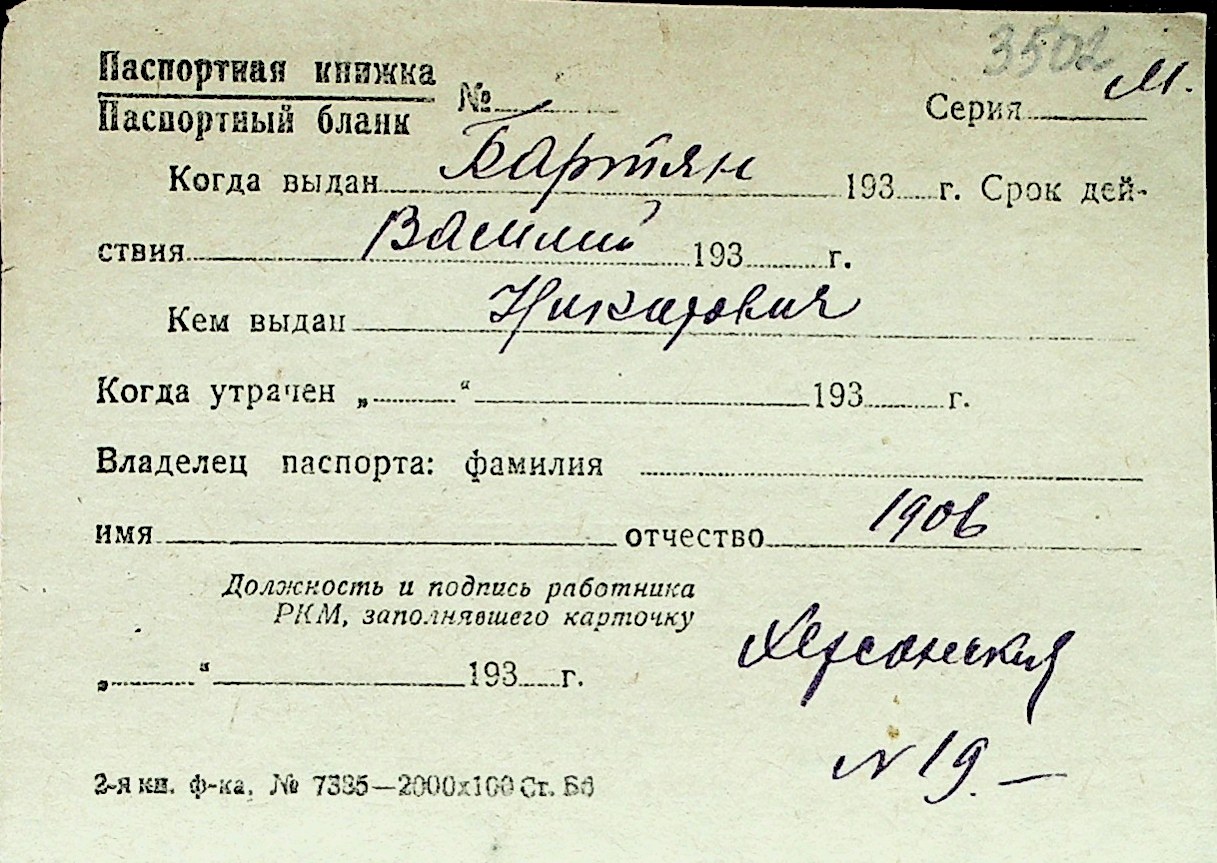 3502
Паспортная книжка
Паспортный бланк
№
Серия М.
Когда выдан Бартян 193 г. Срок дей-
ствия Василий 193 г.
Кем выдан Никитович
Когда утрачен „ “ 193 г.
Владелец паспорта: фамилия
имя отчество 1906
Должность и подпись работника
РКМ, заполнявшего карточку
Херсонская
„ “ 193 г.
N 19.—
2-я кн. ф-ка. № 7385—2000х100 Ст. Б6